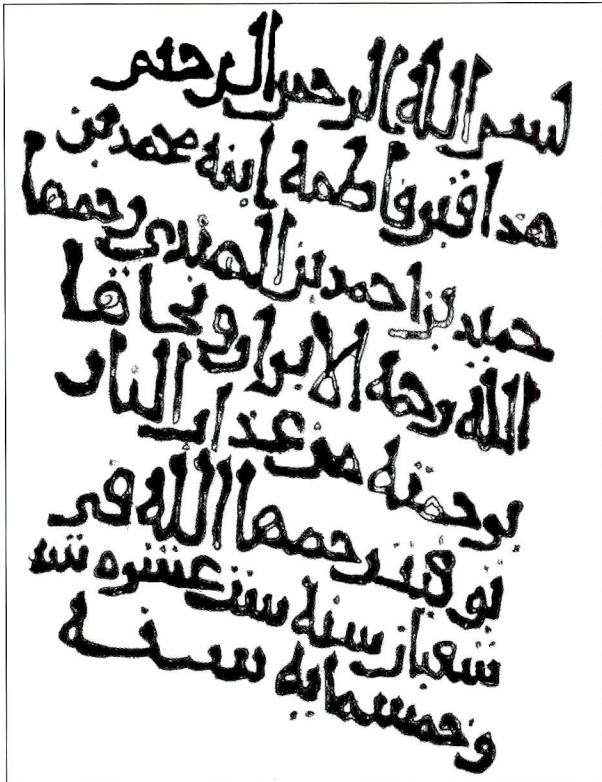 بسم الله الرحمن الرحيم
هذا قبر فاطمة ابنة محمد بن
حميد بن احمد بن المهندي رحمها
الله رحمة الابرار ونجاها
برحمته من عذاب النار
توفيت رحمها الله في
شعبان سنة ست عشره
وخمسماية سنة